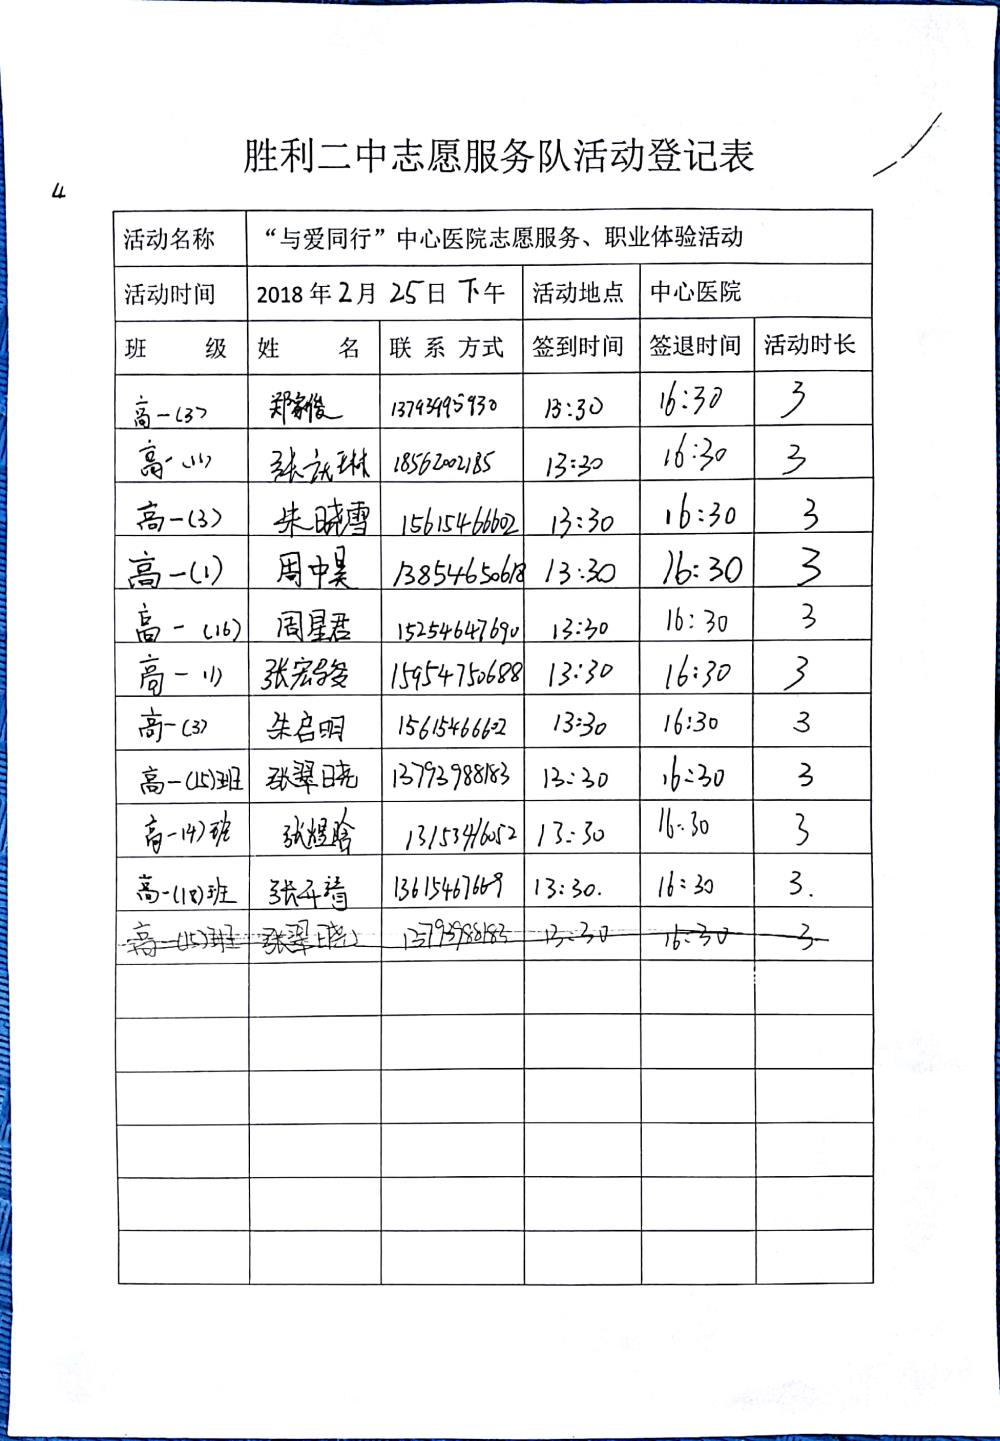 胜利二中志愿服务队活动登记表
4
活动名称 “与爱同行”中心医院志愿服务、职业体验活动
活动时间 2018年2月25日下午 活动地点 中心医院
班级 姓名 联系方式 签到时间 签退时间 活动时长
高一(3) 郑家俊 13793995930 13:30 16:30 3
高一(1) 张 琳 18562002185 13:30 16:30 3
高一(3) 朱晓雪 15615466602 13:30 16:30 3
高一(1) 周中昊 13854650618 13:30 16:30 3
高一(16) 周星君 15254647690 13:30 16:30 3
高一(1) 张宏俊 15954750688 13:30 16:30 3
高一(3) 朱启明 15615466602 13:30 16:30 3
高一(15)班 张翠晓 13793988183 13:30 16:30 3
高一(4)班 张煜晗 13:30 16:30 3
高一(18)班 张 13615467669 13:30. 16:30 3.
高一(15)班 张翠晓 13793988183 13:30 16:30 3